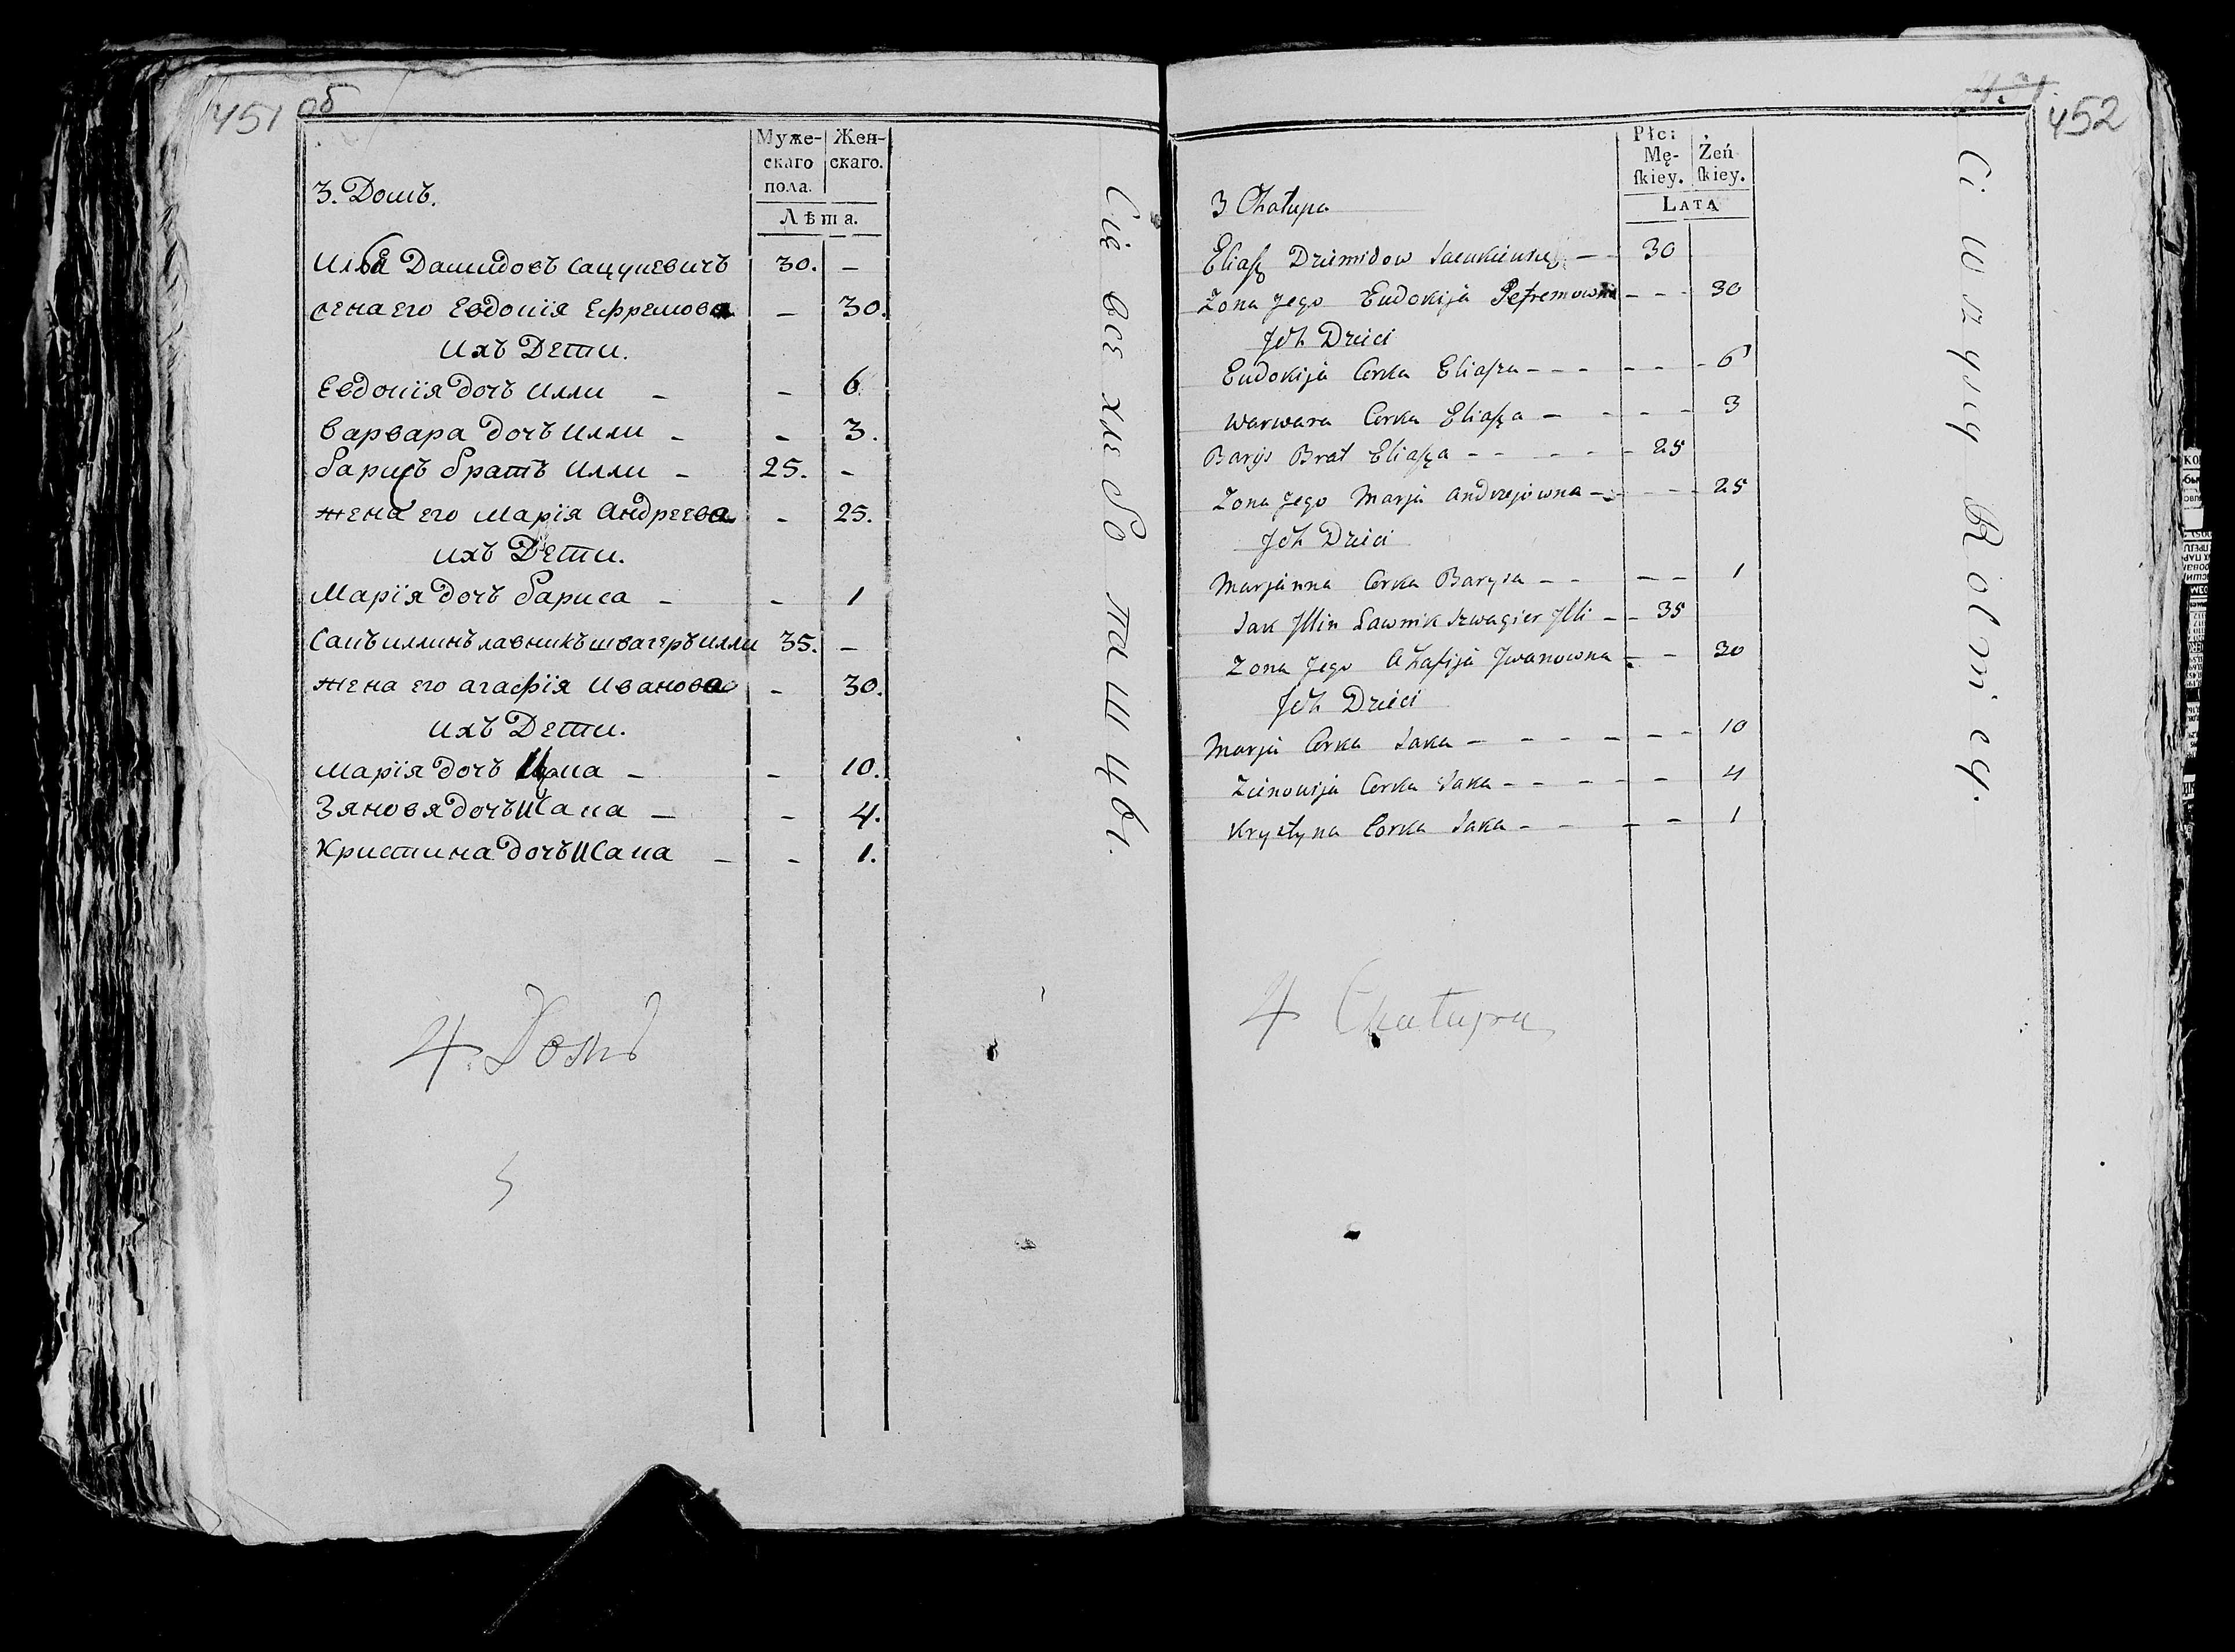 451 об
Муже-
скаго
пола.
Жен-
скаго.
Лѣта.
3. Домъ.
Илья Дамидовъ Сацукевичъ 30. –
жена его Евдокія Ефремова – 30.
ихъ Дети.
Евдокія дочъ Илли – – 6
Варвара дочъ Илли – – 3.
Барисъ братъ Илли – 25. –
жена его Марія Андреева – 25.
ихъ Дети.
Марія дочъ Бариса – – 1
Сакъ Иллинъ лавникъ швагеръ Илли 35. –
жена его Агафія Иванова – 30.
ихъ Дети.
Марія дочъ – – 10.
Зяновя дочъ Сака – – 4.
Христина дочъ Сака – – 1.
4. Домъ
Сіе все хлебопашцы.
452
Płci
Mę-
ſkiey.
Żeń
ſkiey.
LATA
3 Chałupa
Eliaſz Dziemidow Sacukiewicz – 30
Zona Jego Eudokija Jefremowna – – 30
Jch Dzieci
Eudokija Corka Eliaſza – – – – – – 6
Warwara Corka Eliaſza – – – – 3
Barys Brat Eliaſza – – – – – – 25
Zona Jego Marja Andrejowna – – – – 25
Jch Dzieci
Marjanna Corka Barysa – – – – 1
Sak Jllin Ławnik Szwagier Jlli – – 35
Zona Jego Ahafija Jwanowna – – 30
Jch Dzieci
Marja Corka Saka – – – – – – – 10
Zienowija Corka Saka – – – – – – 4
Krystyna Corka Saka – – – – 1
4 Chałupa
Ci wszyscy Rolnicy.